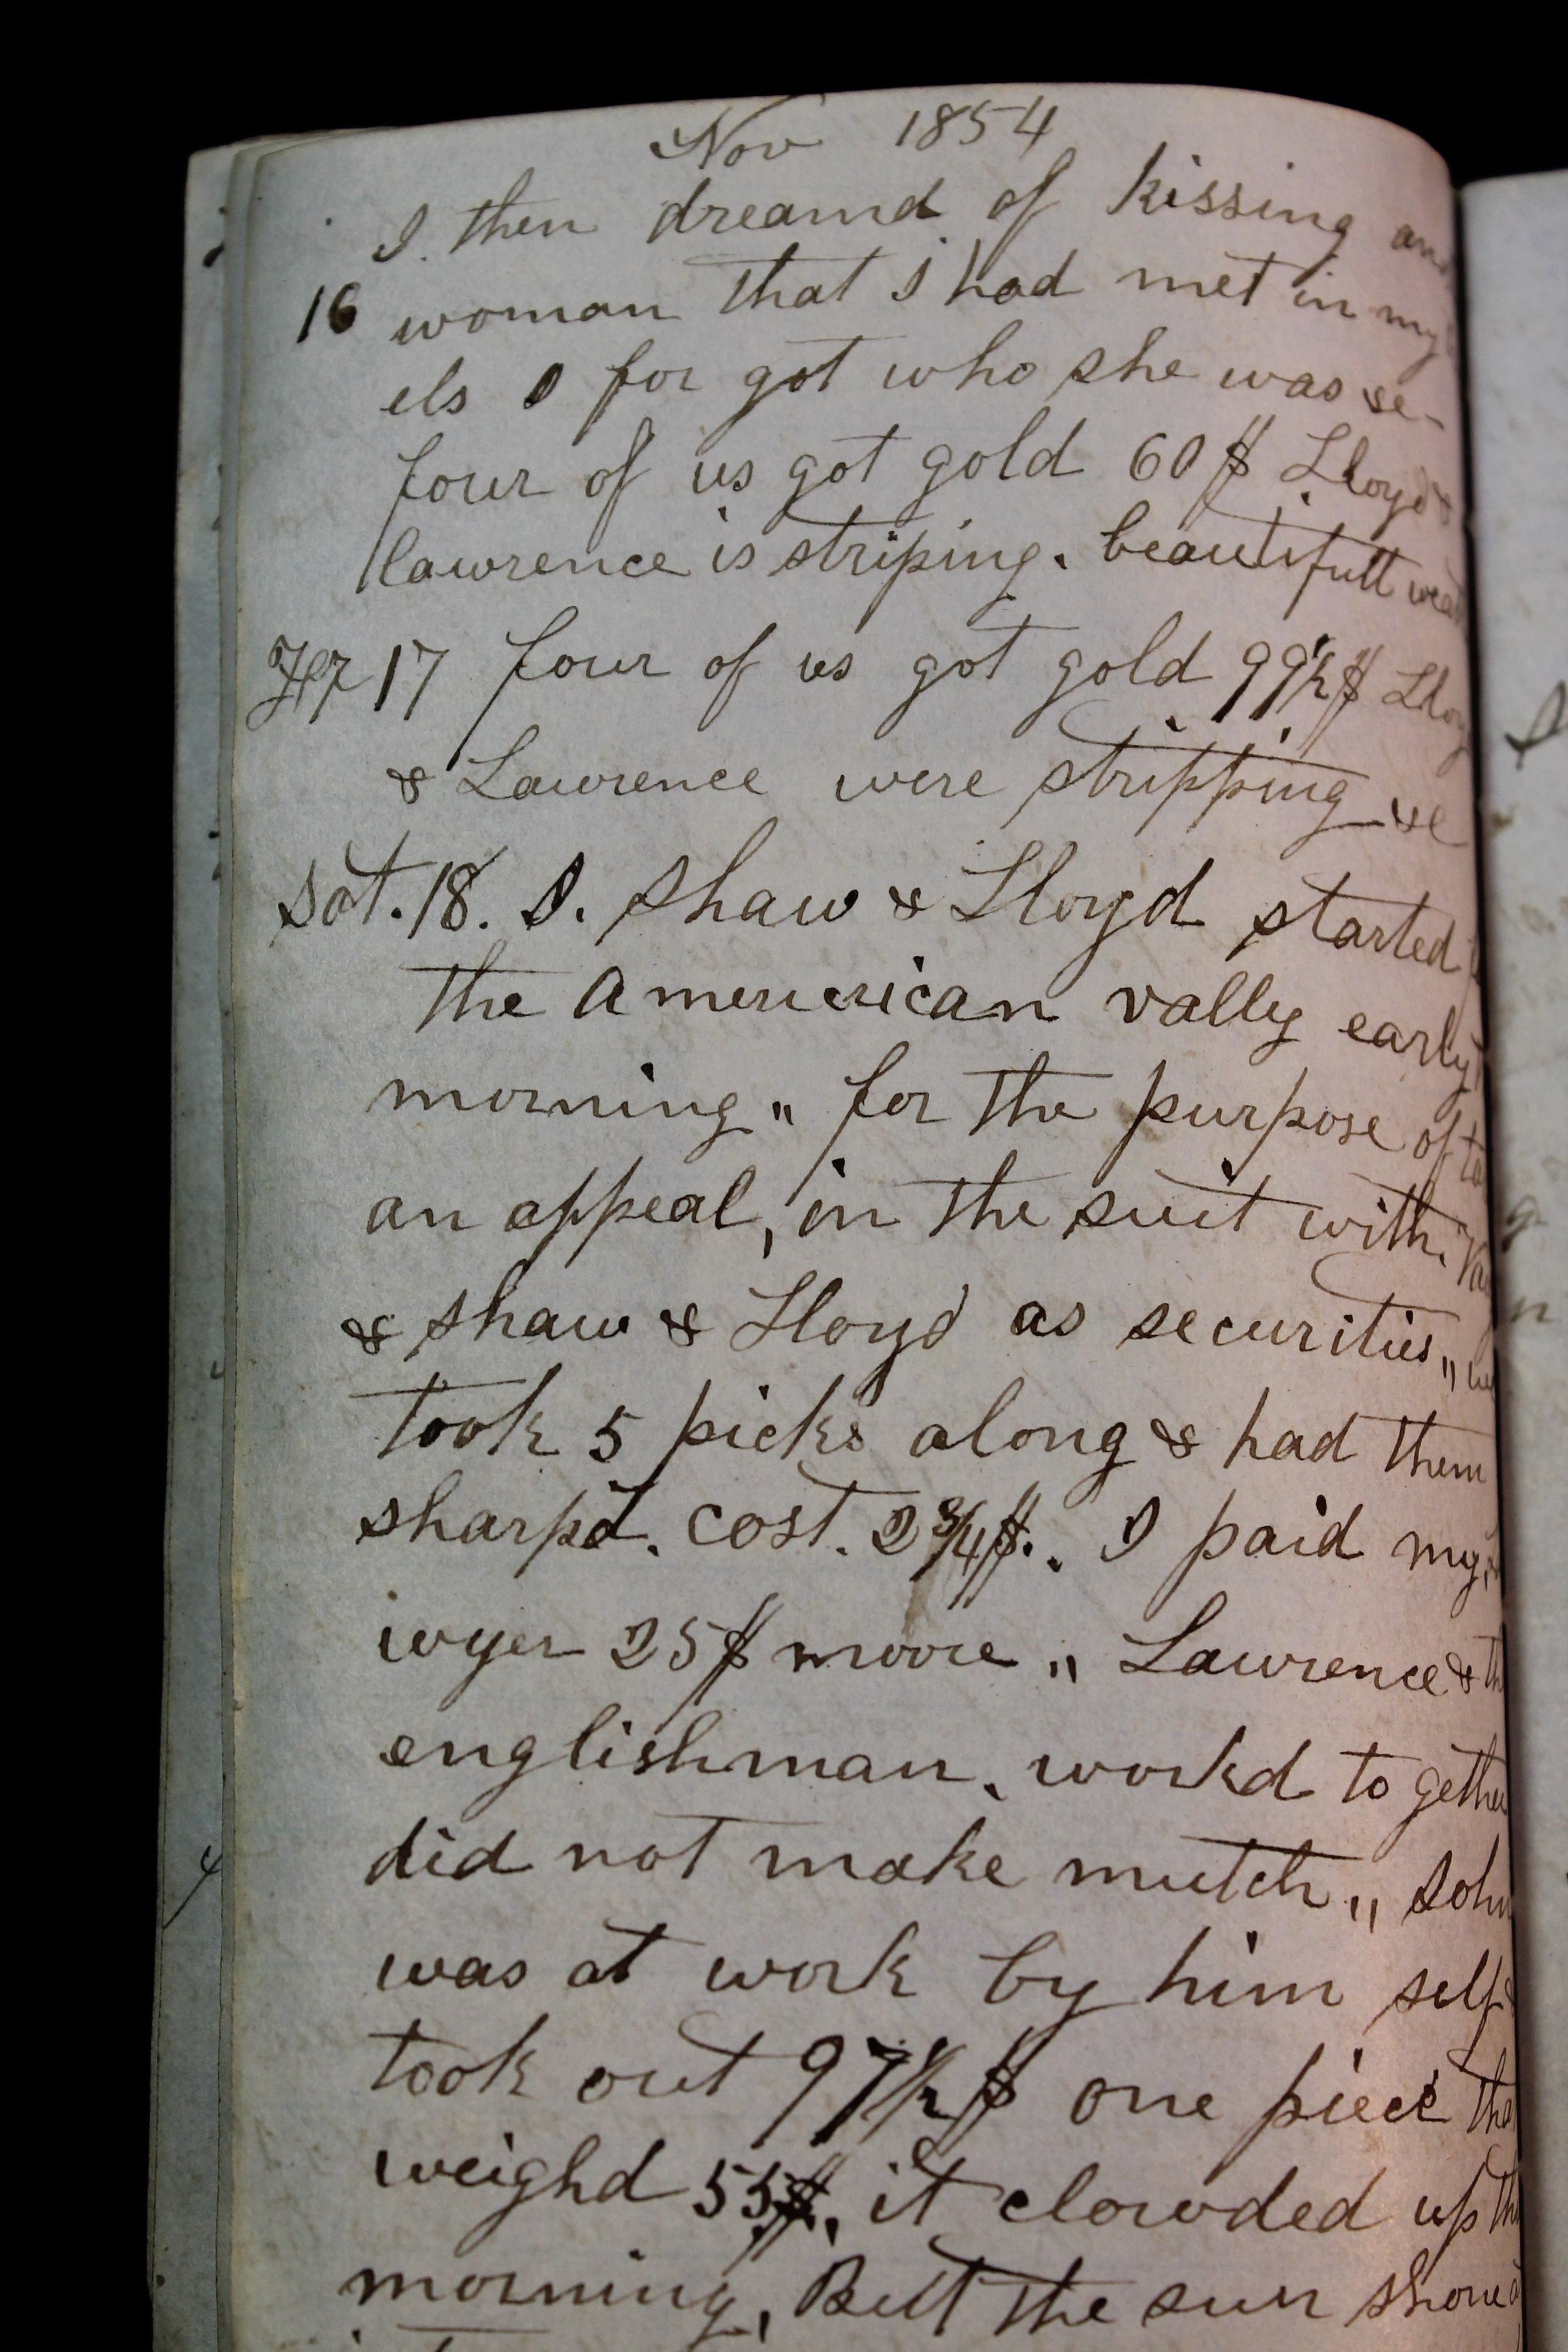 Nov 1854
I then dreamd of kissing
16 woman that I had met in my
els I for got who she was &c-
four of us got gold 60$ Lloyd &
lawrence is striping. beautifull
17 four of us got gold 99½$
& Lawrence were stripping &c
Sat. 18. I. Shaw & Lloyd started
the Amercrican vally early
morning„ for the purpose of
an appeal, in the suit with
& Shaw & Lloyd as securities„
took 5 picks along & had them
sharpd. cost. 2¾$.. I paid my
wyer 25$ moore „ Lawrence &
englishman. workd to gether
did not make mutch„ John
was at work by him self
took out 97½$ one piece
weighd 55$. it clowded up
morning, But the sun shone